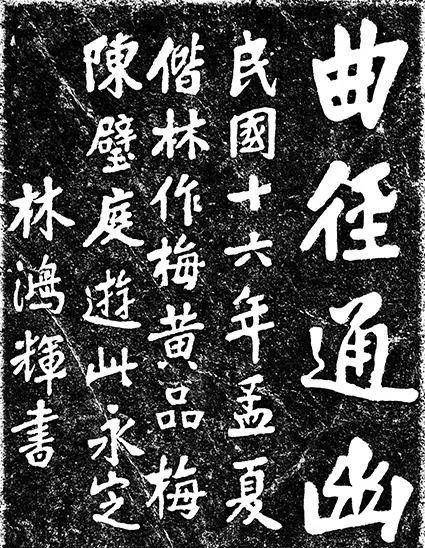 曲径通幽
民國十六年孟夏
偕林作梅黄品梅
陳璧庭遊此永定
林鴻輝書